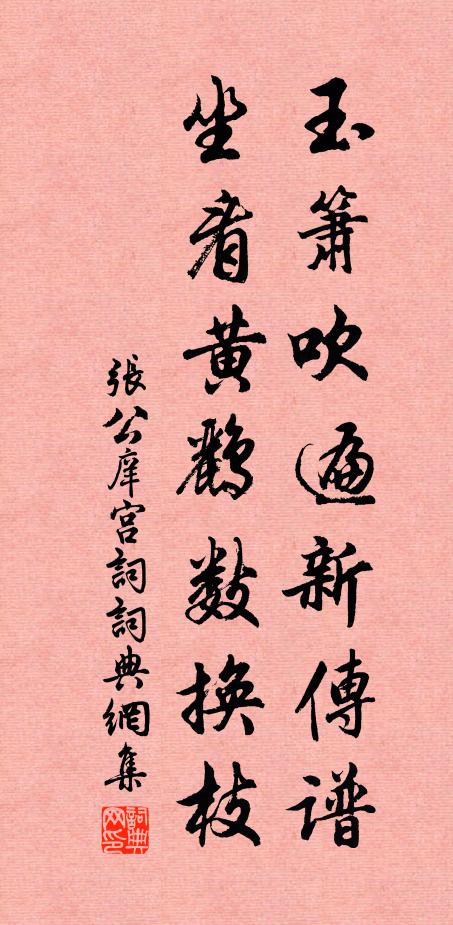 玉簫吹遍新傳譜
坐看黃鸝數換枝
張公庠宮詞詞典網集
詞典网印